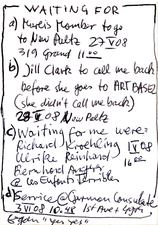 WAITING FOR
a) Member to go
to New Paltz 27 V 08
319 Grand 11 00
b) Jill Clark to call me back
before she goes to ART BASEL
(she didn't call me back)
27 V 08 New Paltz
c) Waiting for me were:
Richard Kroehling
Ulrike Reinhard
Bernhard
@ Les Enfants Terribles
1 V 08
16 00
d) Service @ German Consulate
3 VI 08 10:48 1st Ave
"yes yes"